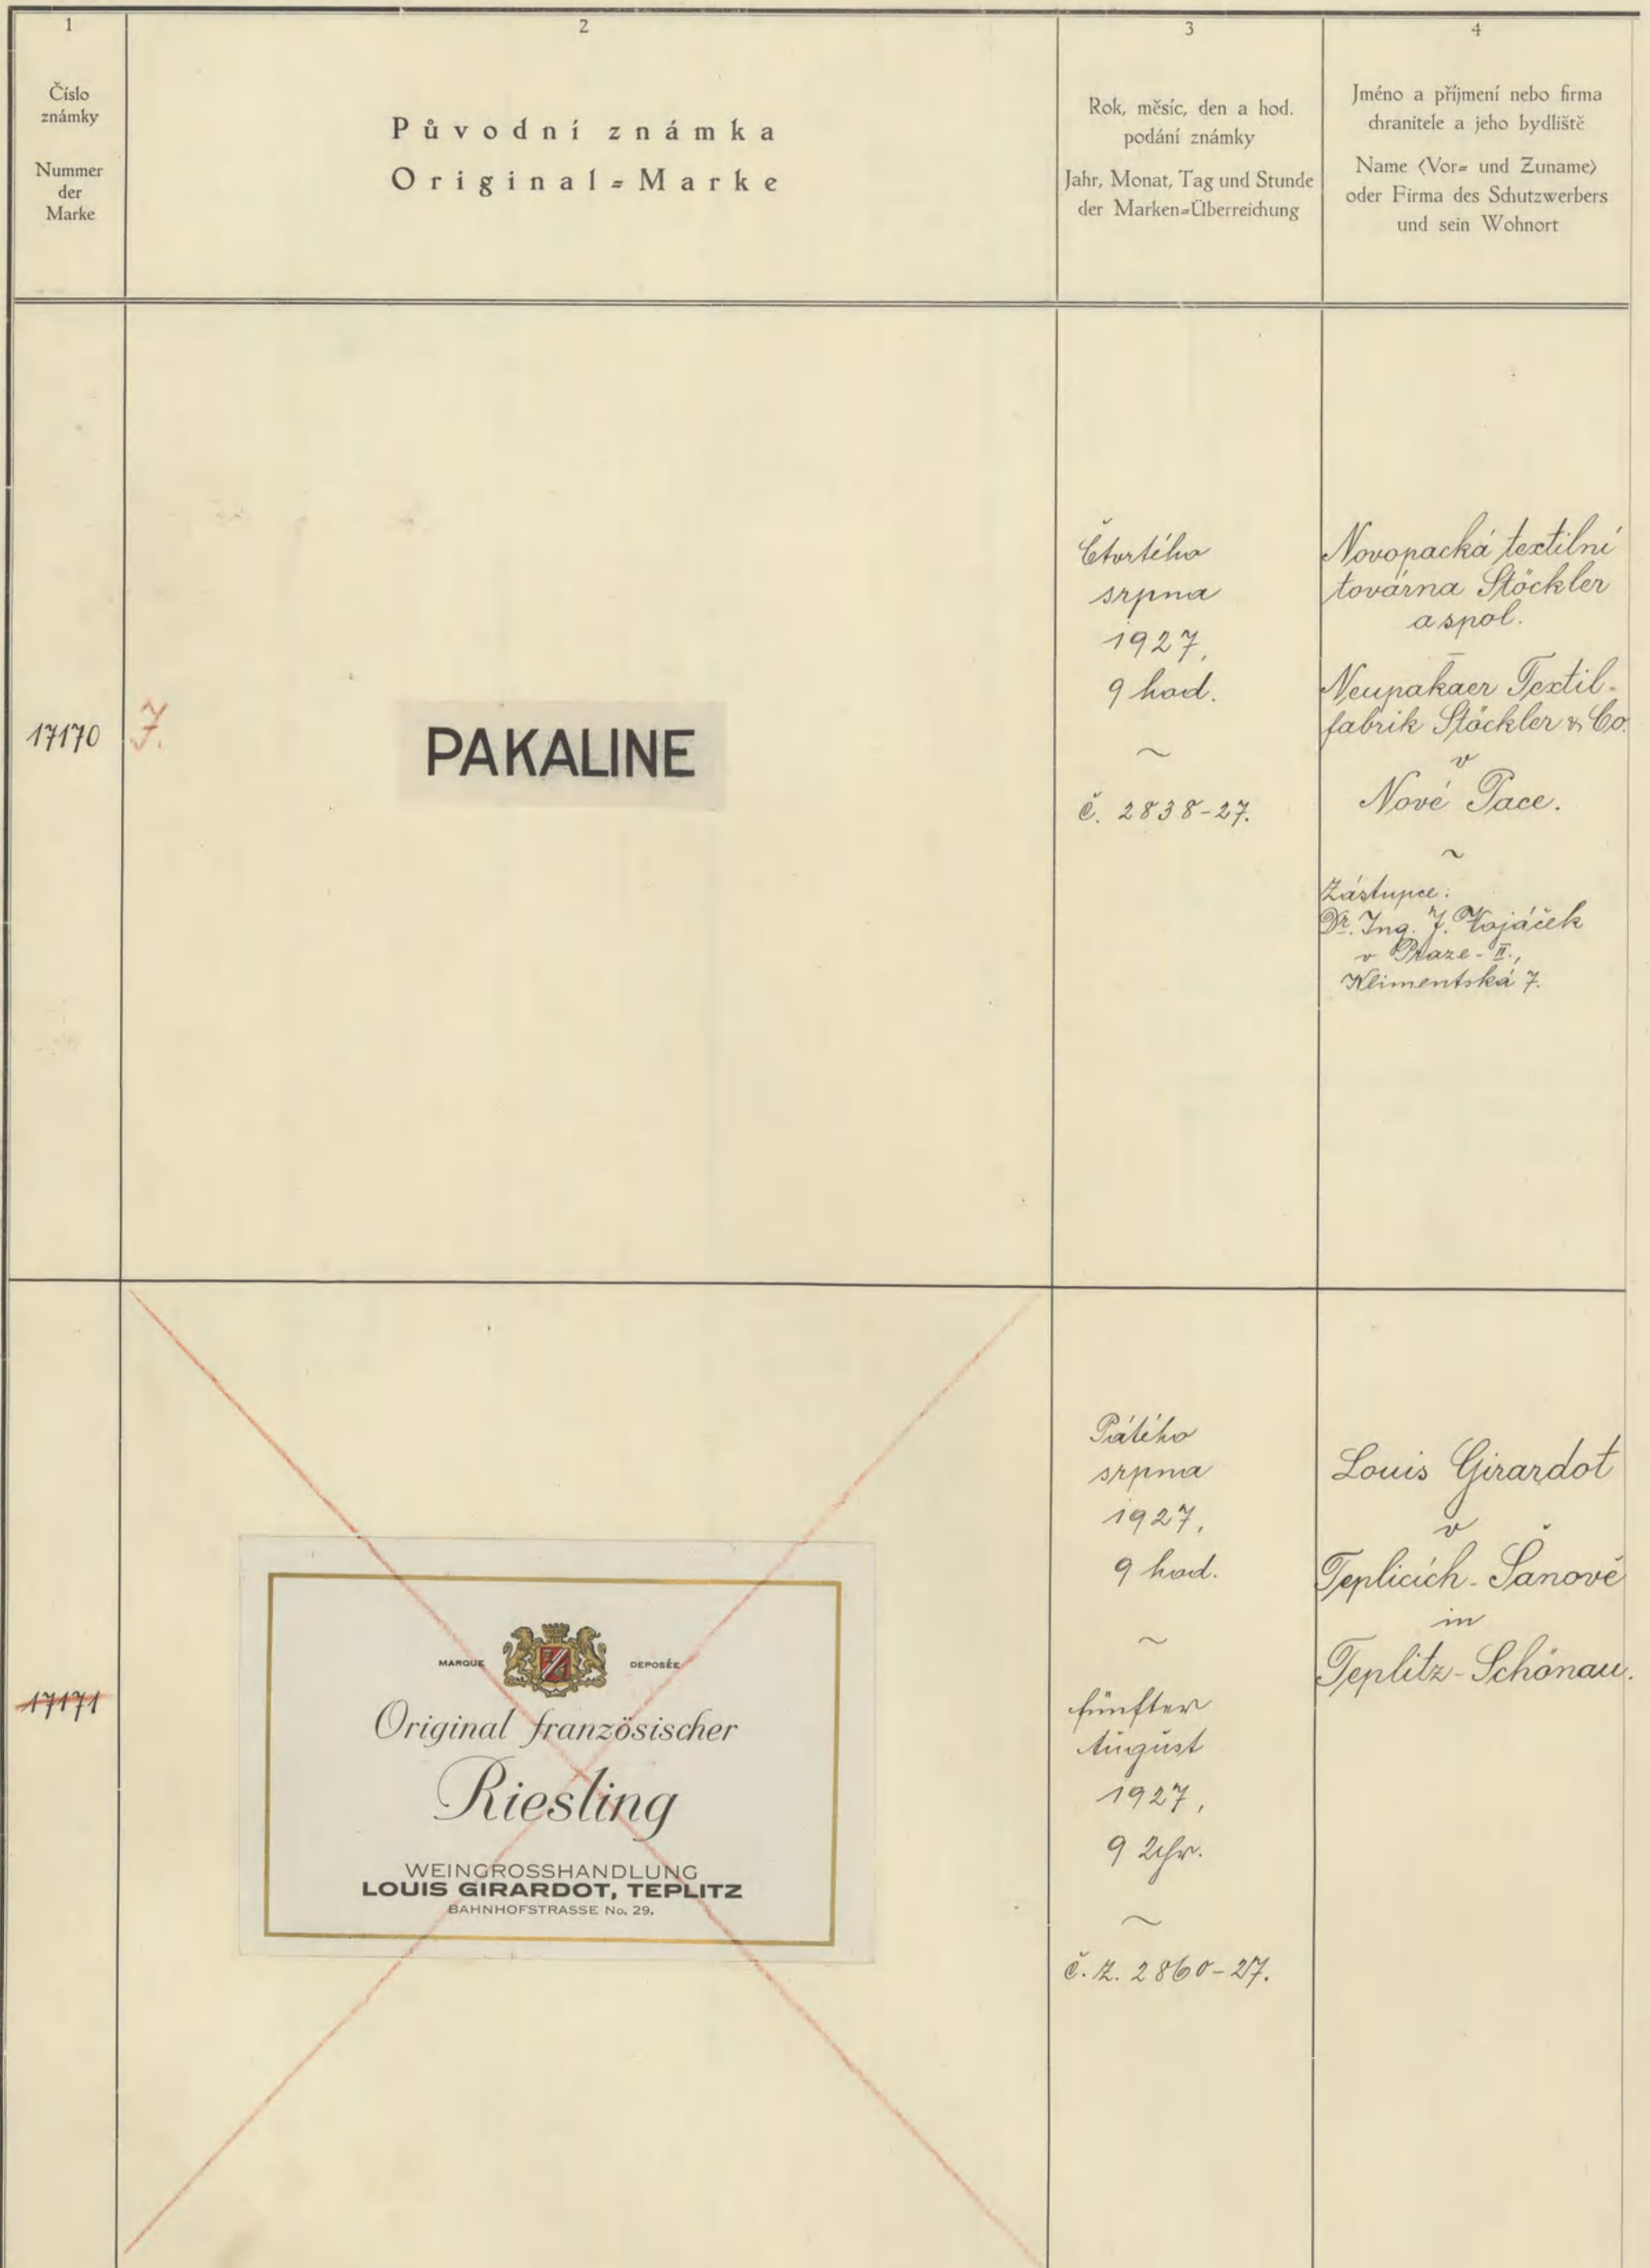 1
2
3
4
Číslo
známky
Nummer
der
Marke
Původní známka
Original-Marke
Rok, měsíc, den a hod.
podání známky
Jahr, Monat, Tag und Stunde
der Marken-Überreichung
Jméno a příjmení nebo firma
chranitele a jeho bydliště
Name (Vor- und Zuname)
oder Firma des Schutzwerbers
und sein Wohnort
17170
J.
PAKALINE
Čtvrtého
srpna
1927,
9 hod.
~
č. 2838-27.
Novopacká textilní
továrna Stöckler
a spol.
Neupakaer Textil-
fabrik Stöckler & Co.
v
Nové Pace.
~
Zástupce:
Dr. Ing. J. Vojáček
v Praze-II.,
Klimentská 7.
17171
MARQUE DEPOSÉE
Original französischer
Riesling
WEINGROSSHANDLUNG
LOUIS GIRARDOT, TEPLITZ
BAHNHOFSTRASSE No. 29.
Pátého
srpna
1927,
9 hod.
~
fünfter
August
1927,
9 Uhr.
~
č. z. 2860-27.
Louis Girardot
v
Teplicích-Šanově
in
Teplitz-Schönau.